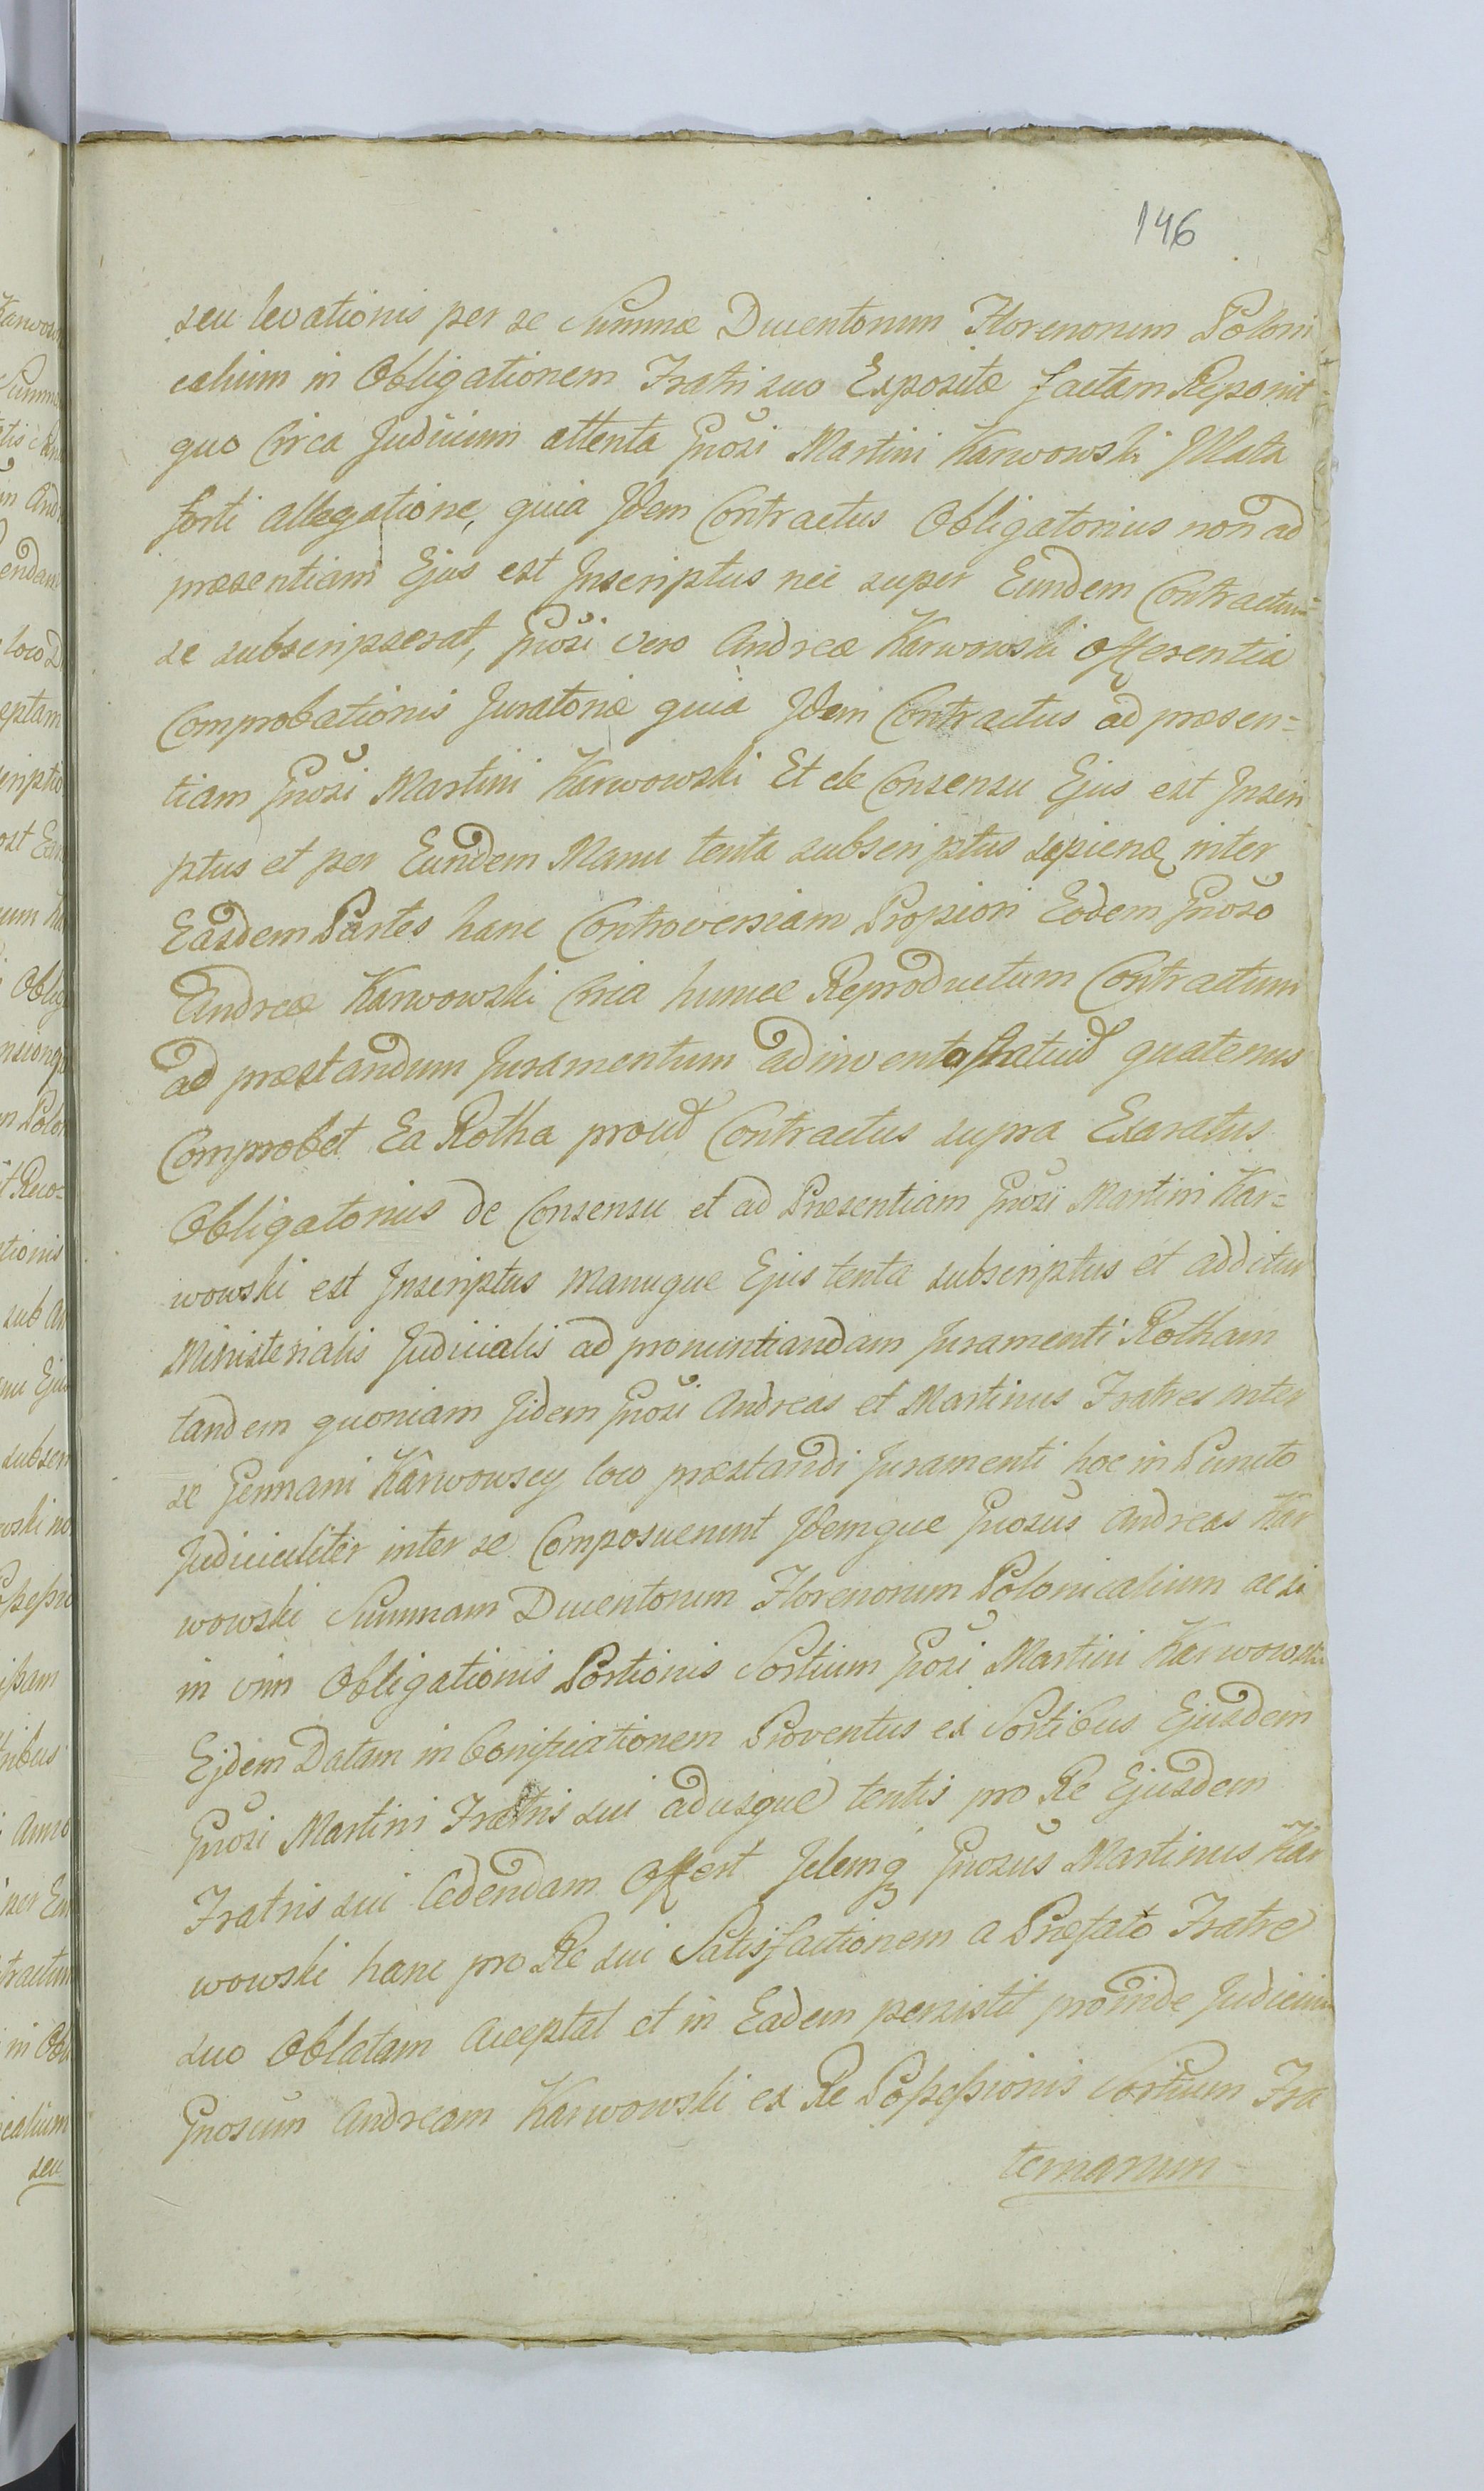 146
seu levationis per se Summæ Ducentorum Florenorum Poloni
calium in Obligationem Fratri suo Expositæ factam Reponit
quo Circa Judicium attenta Gnosi Martini Karwowski Illata
forti allegatione, quia Idem Contractus Obligatorius non ad
præsentiam Ejus est Inscriptus nec super Eundem Contractum
se subscripserat, Gnosi vero Andreæ Karwowski offerentia
Comprobationis Juratoriæ quia Idem Contractus ad præsen=
tiam Gnosi Martini Karwowski Et de Consensu Ejus est Inscri
ptus et per Eundem Manu tenta subscriptus sopiendo inter
Easdem Partes hanc Controversiam Propiori Eodem Gnoso
Andreæ Karwowski Circa huncce Reproductum Contractum
ad præstandum Juramentum adinvento statuit quatenus
Comprobet Ea Rotha prout Contractus supra Exaratus
Obligatorius de Consensu et ad Præsentiam Gnosi Martini Kar=
wowski est Inscriptus Manuque Ejus tenta subscriptus et additur
Ministerialis Judicialis ad pronuntiandam Juramenti Rotham
tandem quoniam Iidem Gnosi Andreas et Martinus Fratres inter
se Germani Karwowscy loco præstandi Juramenti hoc in Puncto
Judicialiter inter se Composuerunt Idemque Gnosus Andreas Kar
wowski Summam Ducentorum Florenorum Polonicalium ac si
in vim Obligationis Portionis Sortium Gnosi Martini Karwowski
Ejdem Datam in bonificationem Proventus ex Sortibus Ejusdem
Gnosi Martini Fratris sui adusque tentis pro Re Ejusdem
Fratris sui Cedendam Offert Idemq Gnosus Martinus Kar
wowski hanc pro Re sui Satisfactionem a Præfato Fratre
suo Oblatam acceptat et in Eadem persistit proinde Judicium
Gnosum Andream Karwowski ex Re Possessionis Sortium Fra
ternarum